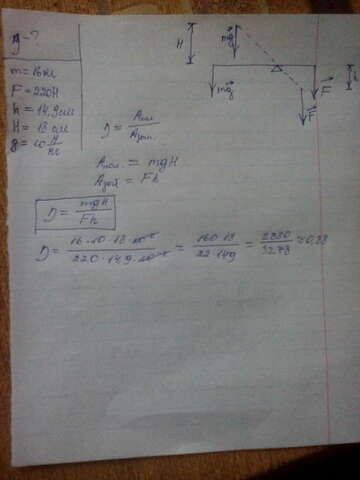 η - ?
m = 16 кг
F = 220 Н
h = 14,9 см
H = 18 см
g = 10 Н/кг
H mg⃗
mg⃗ F⃗ h
F⃗
η = Aпол. / Aзат.
Aпол. = mgH
Aзат = Fh
η = mgH / Fh
η = 16 · 10 · 18 · 10⁻² / 220 · 14,9 · 10⁻² = 160 · 18 / 22 · 149 = 2880 / 3278 ≈ 0,88